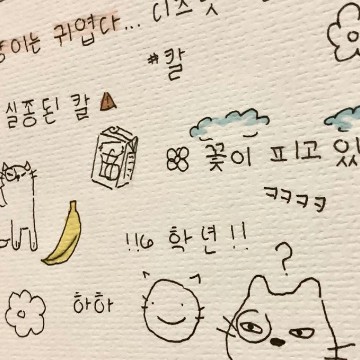 이는 귀엽다...
#칼
실종된 칼
꽃이 피고 있
ㅋㅋㅋㅋ
!!6 학년!!
?
하하